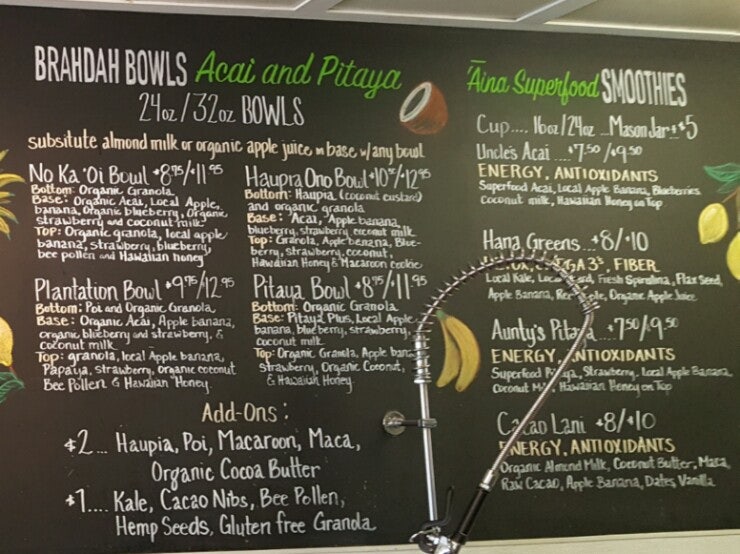 BRAHDAH BOWLS Acai and Pitaya
24oz/32oz BOWLS
subsitute almond milk or organic apple juice in base w/any bowl
No Ka 'Oi Bowl $8.75/$11.95
Bottom: Organic Granola
Base: Organic Acai, Local Apple,
banana, Organic blueberry, Organic
strawberry and coconut milk
Top: Organic granola, local apple
banana, strawberry, blueberry,
bee pollen and Hawaiian honey
Plantation Bowl $9.75/12.95
Bottom: Poi and Organic Granola
Base: Organic Acai, Apple banana,
organic blueberry and strawberry, &
coconut milk
Top: granola, local Apple banana,
Papaya, strawberry, organic coconut
Bee Pollen & Hawaiian Honey
Haupia Ono Bowl $10.75/12.95
Bottom: Haupia (coconut custard)
and organic granola
Base: Acai, Apple banana,
blueberry, strawberry, coconut milk
Top: Granola, Apple banana, Blue-
berry, strawberry, coconut,
Hawaiian Honey & Macaroon cookie
Pitaya Bowl $8.75/11.95
Bottom: Organic Granola
Base: Pitaya Plus, Local Apple
banana, blueberry, strawberry,
coconut milk
Top: Organic Granola, Apple bana
Strawberry, Organic Coconut,
& Hawaiian Honey
Add-Ons:
$2... Haupia, Poi, Macaroon, Maca,
Organic Cocoa Butter
$1.... Kale, Cacao Nibs, Bee Pollen,
Hemp Seeds, Gluten free Granola
'Āina Superfood SMOOTHIES
Cup.... 16oz/24oz ...Mason Jar+$5
Uncle's Acai ....$7.50/$9.50
ENERGY, ANTIOXIDANTS
Superfood Acai, Local Apple Banana, Blueberries
Coconut milk, Hawaiian Honey on Top
Hana Greens...$8/$10
FIBER
Local Kale, Fresh Spirulina, Flax Seed,
Apple Banana, Organic Apple Juice
Aunty's Pitaya $7.50/9.50
ENERGY, ANTIOXIDANTS
Superfood Pitaya, Strawberry, Local Apple Banana,
Coconut Milk, Hawaiian Honey on Top
Cacao Lani $8/$10
ENERGY, ANTIOXIDANTS
Organic Almond Milk, Coconut Butter, Maca,
Raw Cacao, Apple Banana, Dates, Vanilla